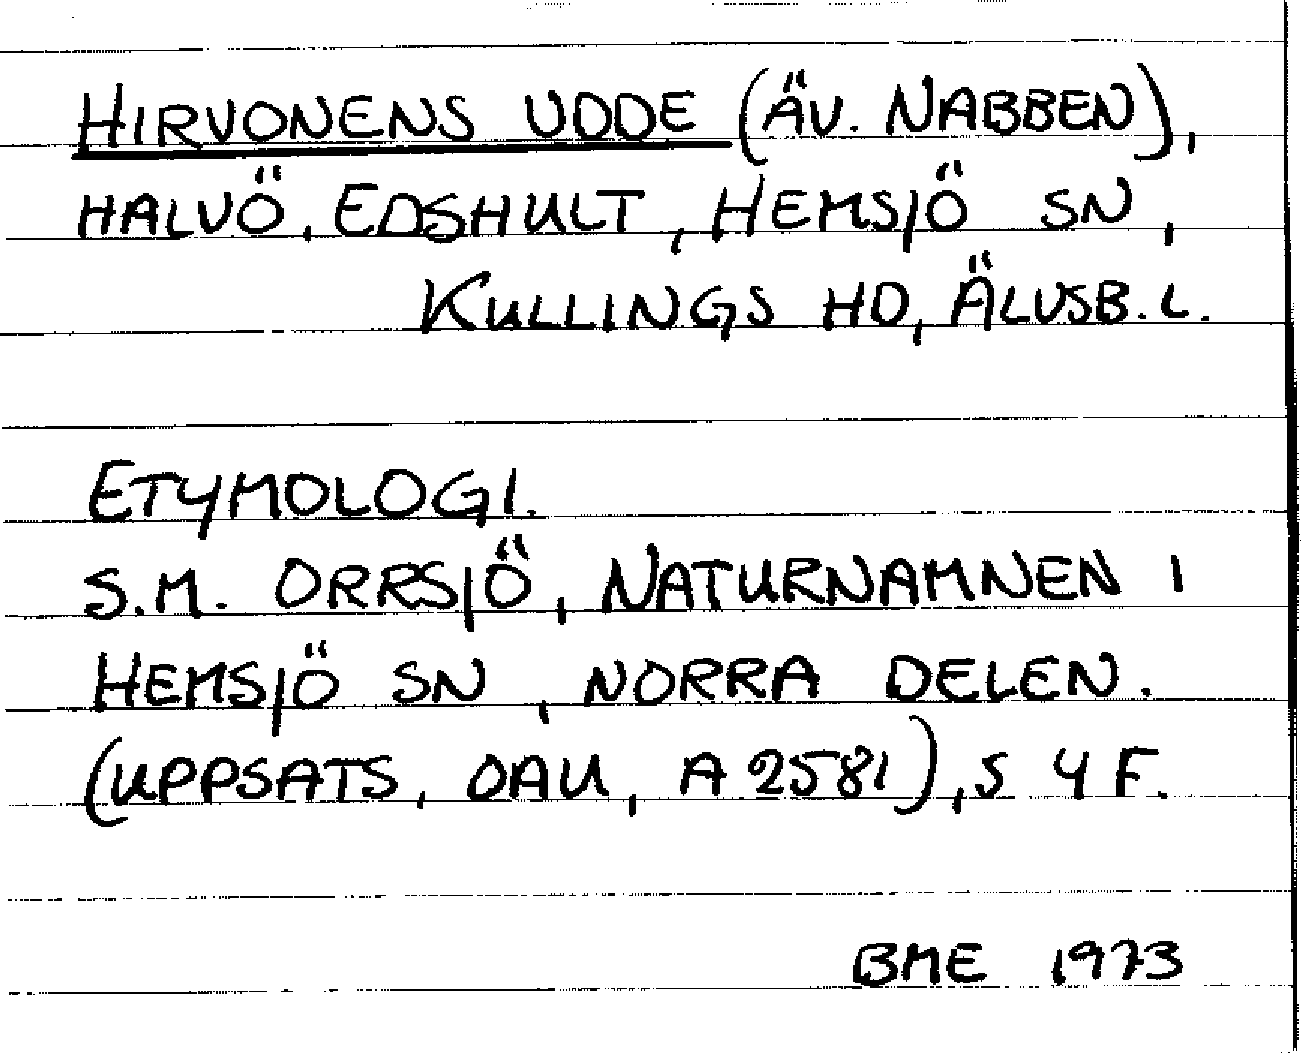 HIRVONENS UDDE (ÄV. NABBEN),
HALVÖ, EDSHULT, HEMSJÖ SN,
KULLINGS HD, ÄLVSB. L.
ETYMOLOGI.
S.M. ORRSJÖ, NATURNAMNEN I
HEMSJÖ SN, NORRA DELEN.
(UPPSATS, OAU, A 2581), S 4 F.
BME 1973